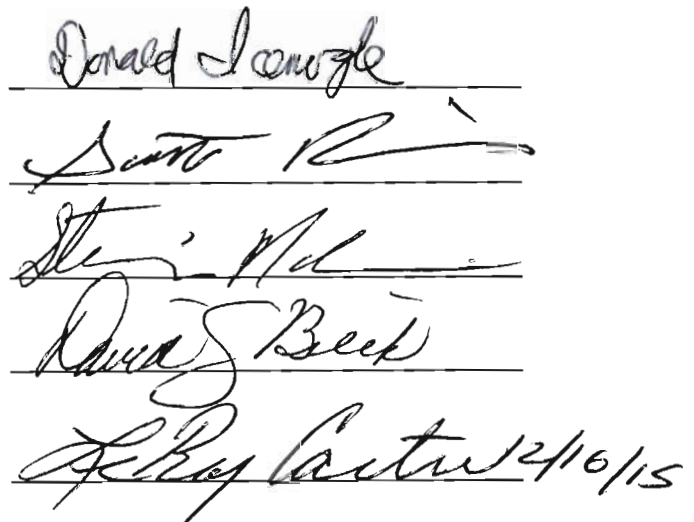 Donald Icenogle
Scott
Steve
David J Beck
LeRoy Carter 12/16/15